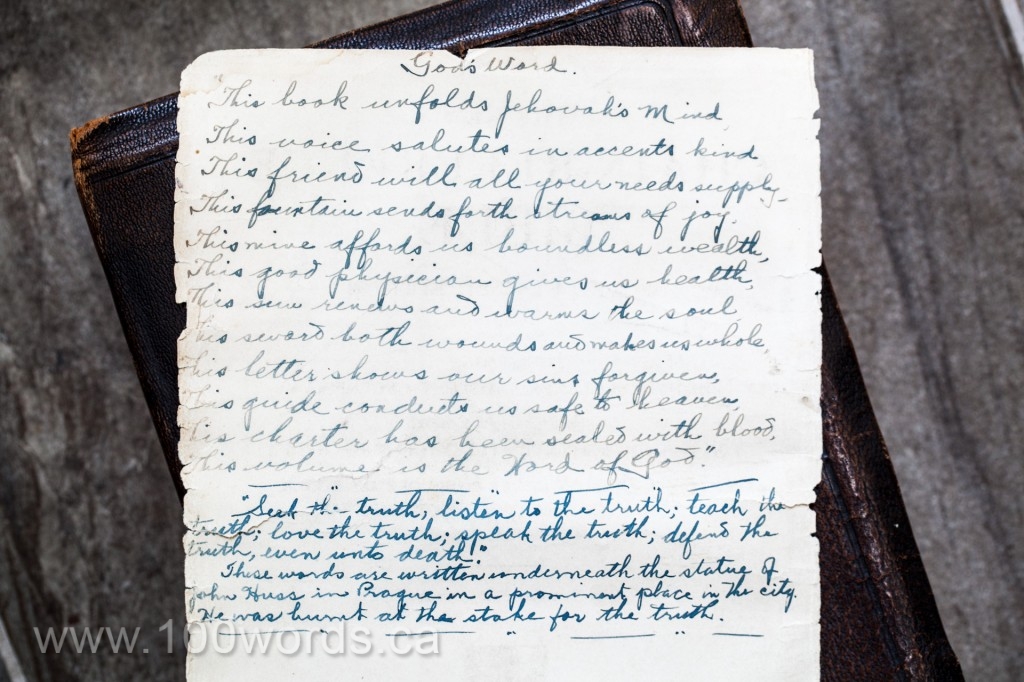 God's Word.
"This book unfolds Jehovah's Mind,
This voice salutes in accents kind
This friend will all your needs supply-
This fountain sends forth streams of joy.
This mine affords us boundless wealth,
This good physician gives us health,
This sun renews and warms the soul
This sword both wounds and makes us whole,
This letter shows our sins forgiven,
This guide conducts us safe to heaven,
This charter has been sealed with blood,
This volume is the Word of God."
"Seek the truth; listen to the truth; teach the
truth; love the truth; speak the truth; defend the
truth, even unto death."
These words are written underneath the statue of
John Huss in Prague in a prominent place in the city.
He was burnt at the stake for the truth.
www.100words.ca